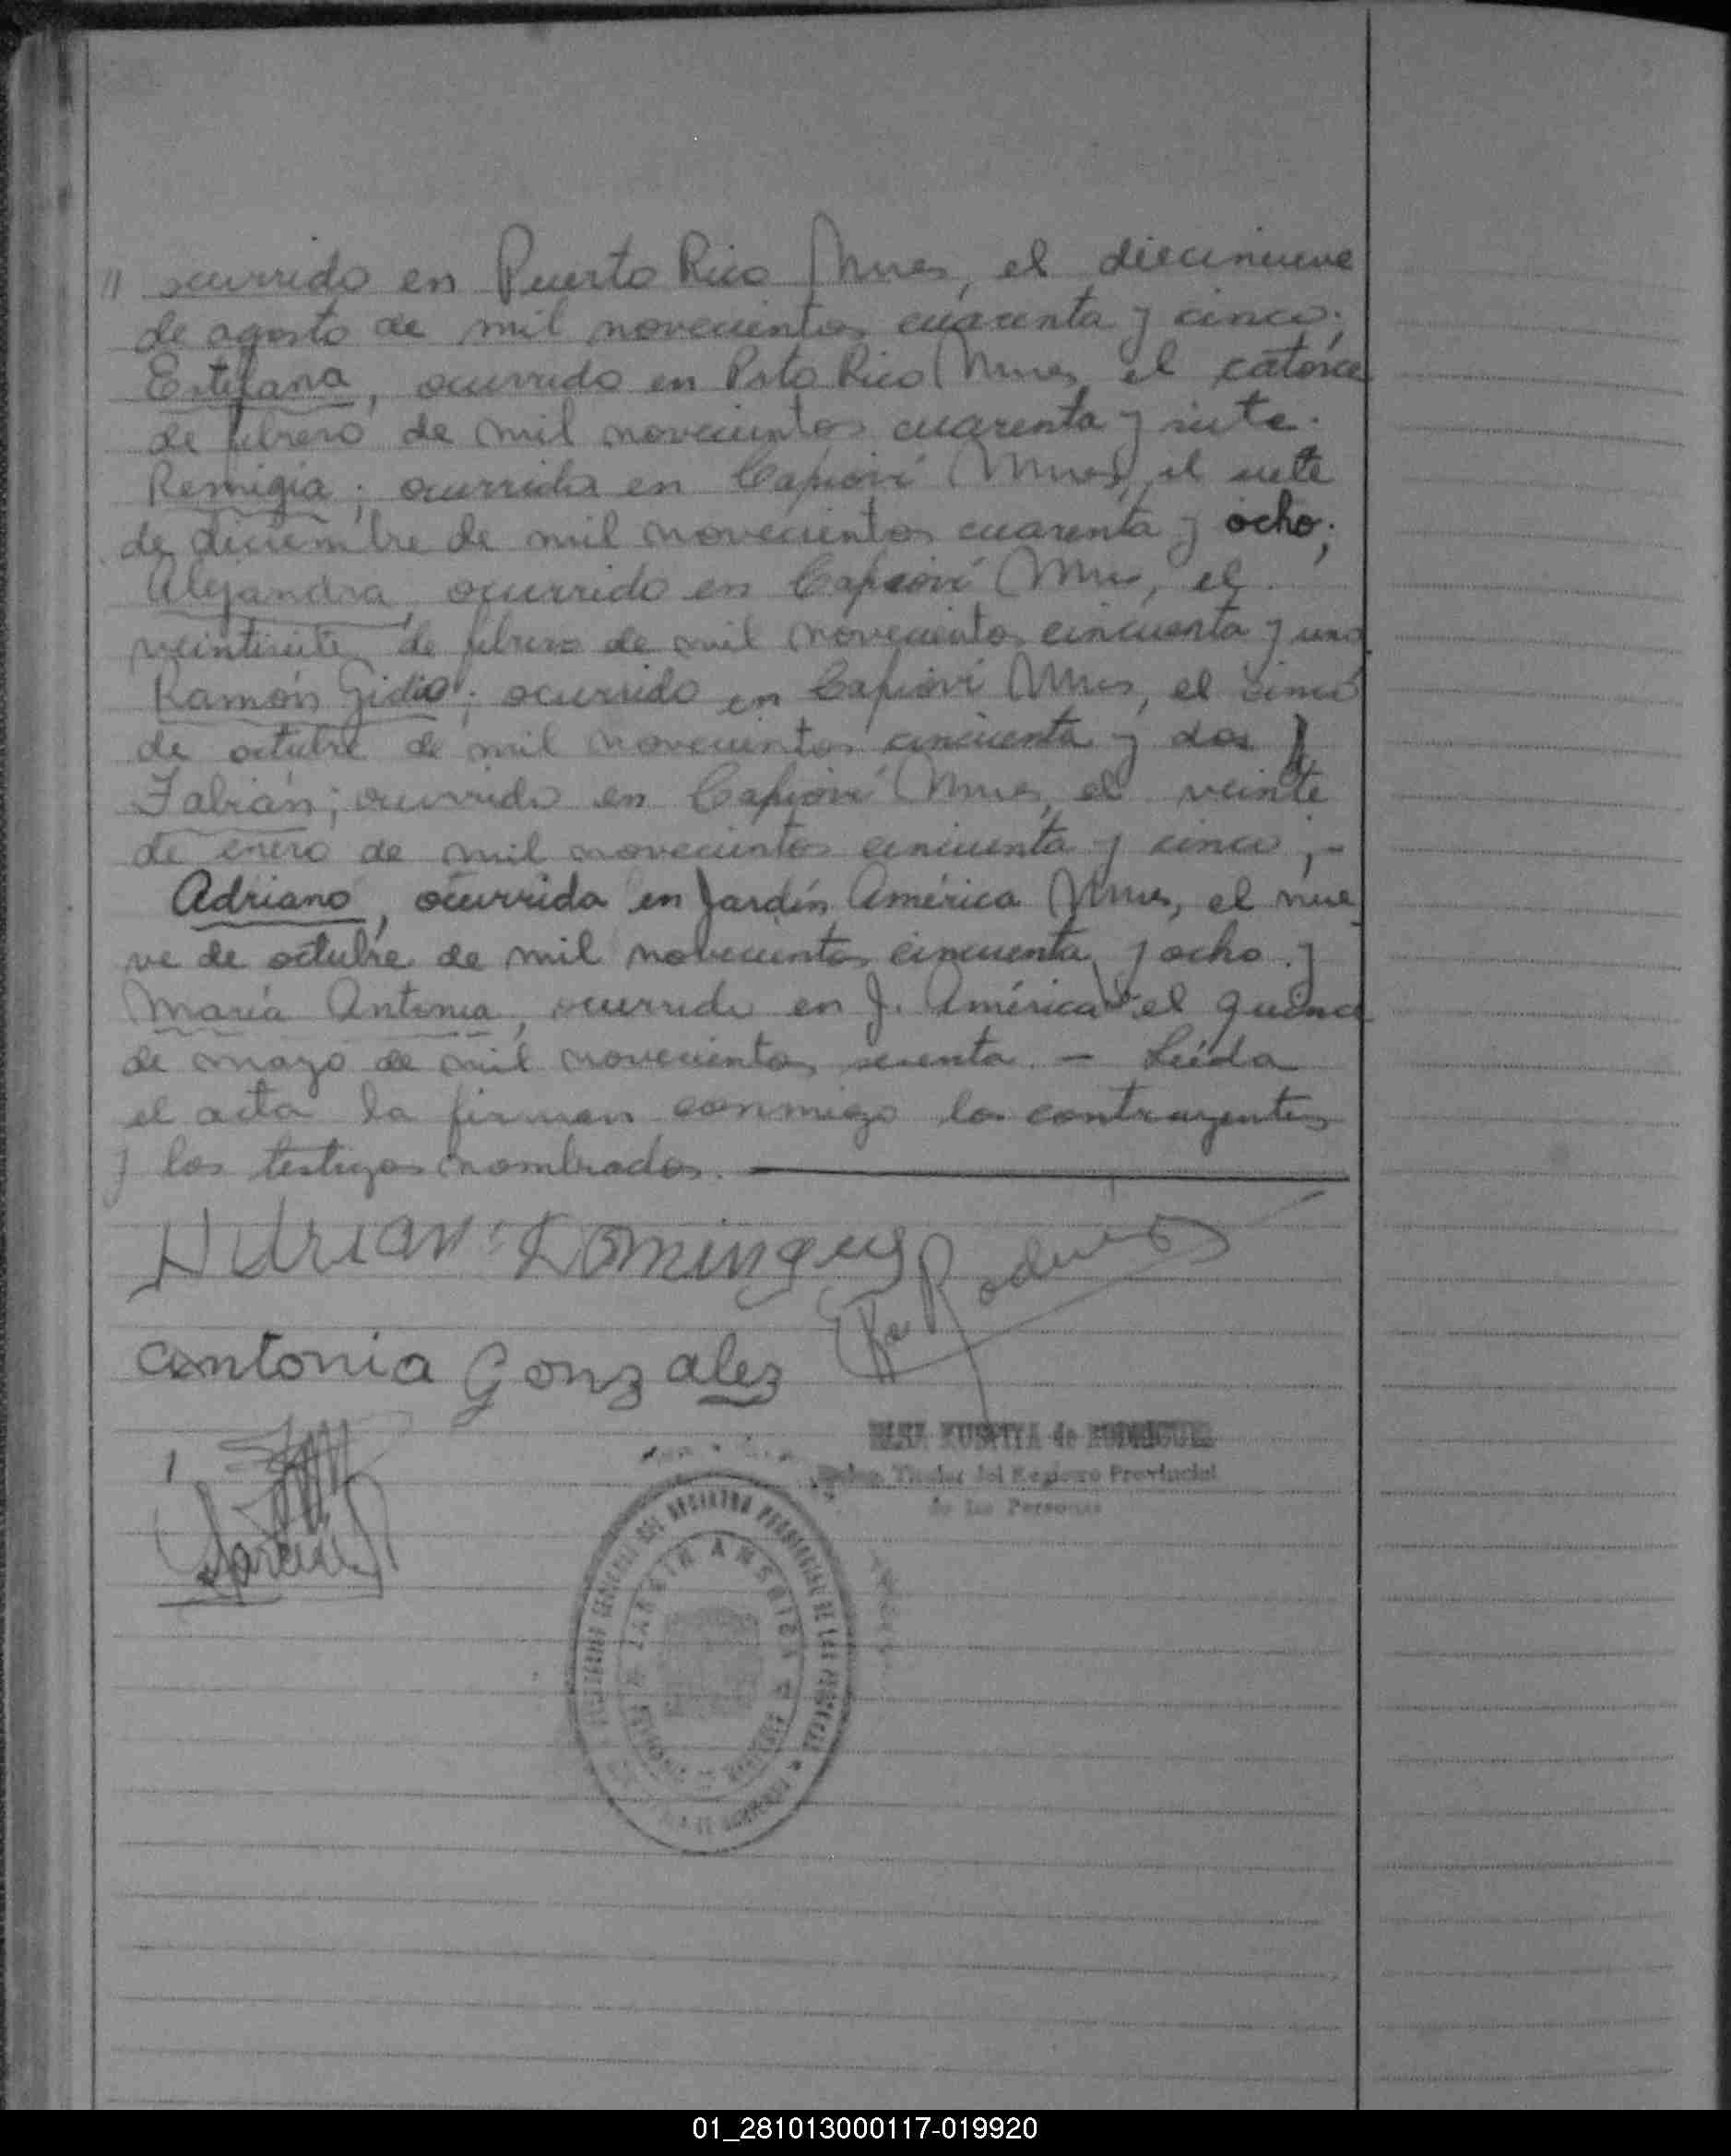 // ocurrido en Puerto Rico Mnes, el diecinueve
de agosto de mil novecientos cuarenta y cinco;
Estefana, ocurrido en Pto Rico Mnes, el catorce
de febrero de mil novecientos cuarenta y siete.
Remigia; ocurrido en Capioví Mnes, el siete
de diciembre de mil novecientos cuarenta y ocho;
Alejandra, ocurrido en Capioví Mnes, el
veintisiete de febrero de mil novecientos cincuenta y uno
Ramón Gidio; ocurrido en Capioví Mnes, el cinco
de octubre de mil novecientos cincuenta y dos
Fabián; ocurrido en Capioví Mnes, el veinte
de enero de mil novecientos cincuenta y cinco;-
Adriano, ocurrida en Jardín América Mnes, el nue
ve de octubre de mil novecientos cincuenta y ocho. y
María Antonia, ocurrido en J. América el quince
de mayo de mil novecientos sesenta. - Leída
el acta la firman conmigo los contrayentes
y los testigos nombrados.
Domingues
Rodriguez
Antonia Gonzalez
de RODRIGUEZ
Titular del Registro Provincial
de las Personas
DEL REGISTRO PROVINCIAL DE LAS PERSONAS
JARDIN AMERICA
01_281013000117-019920